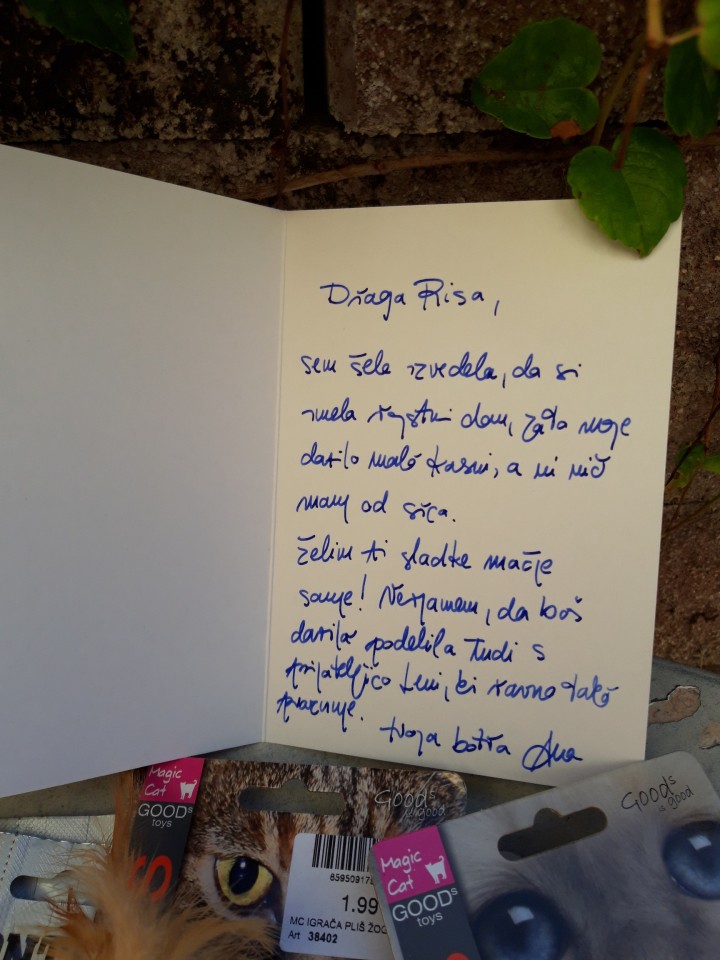 Draga Risa,
sem šele izvedela, da si
imela rojstni dan, zato moje
darilo malo kasni, a ni nič
manj od srca.
Želim ti sladke mačje
sanje! Verjamem, da boš
darila podelila tudi s
prijateljico Leni, ki ravno tako
praznuje.
tvoja botra Ana
Magic
Cat
GOODs
toys
GOODs
is good
S
8595091
1.99
MC IGRAČA PLIŠ
Art 38402
Magic
Cat
GOODs
toys
GOODs
is good